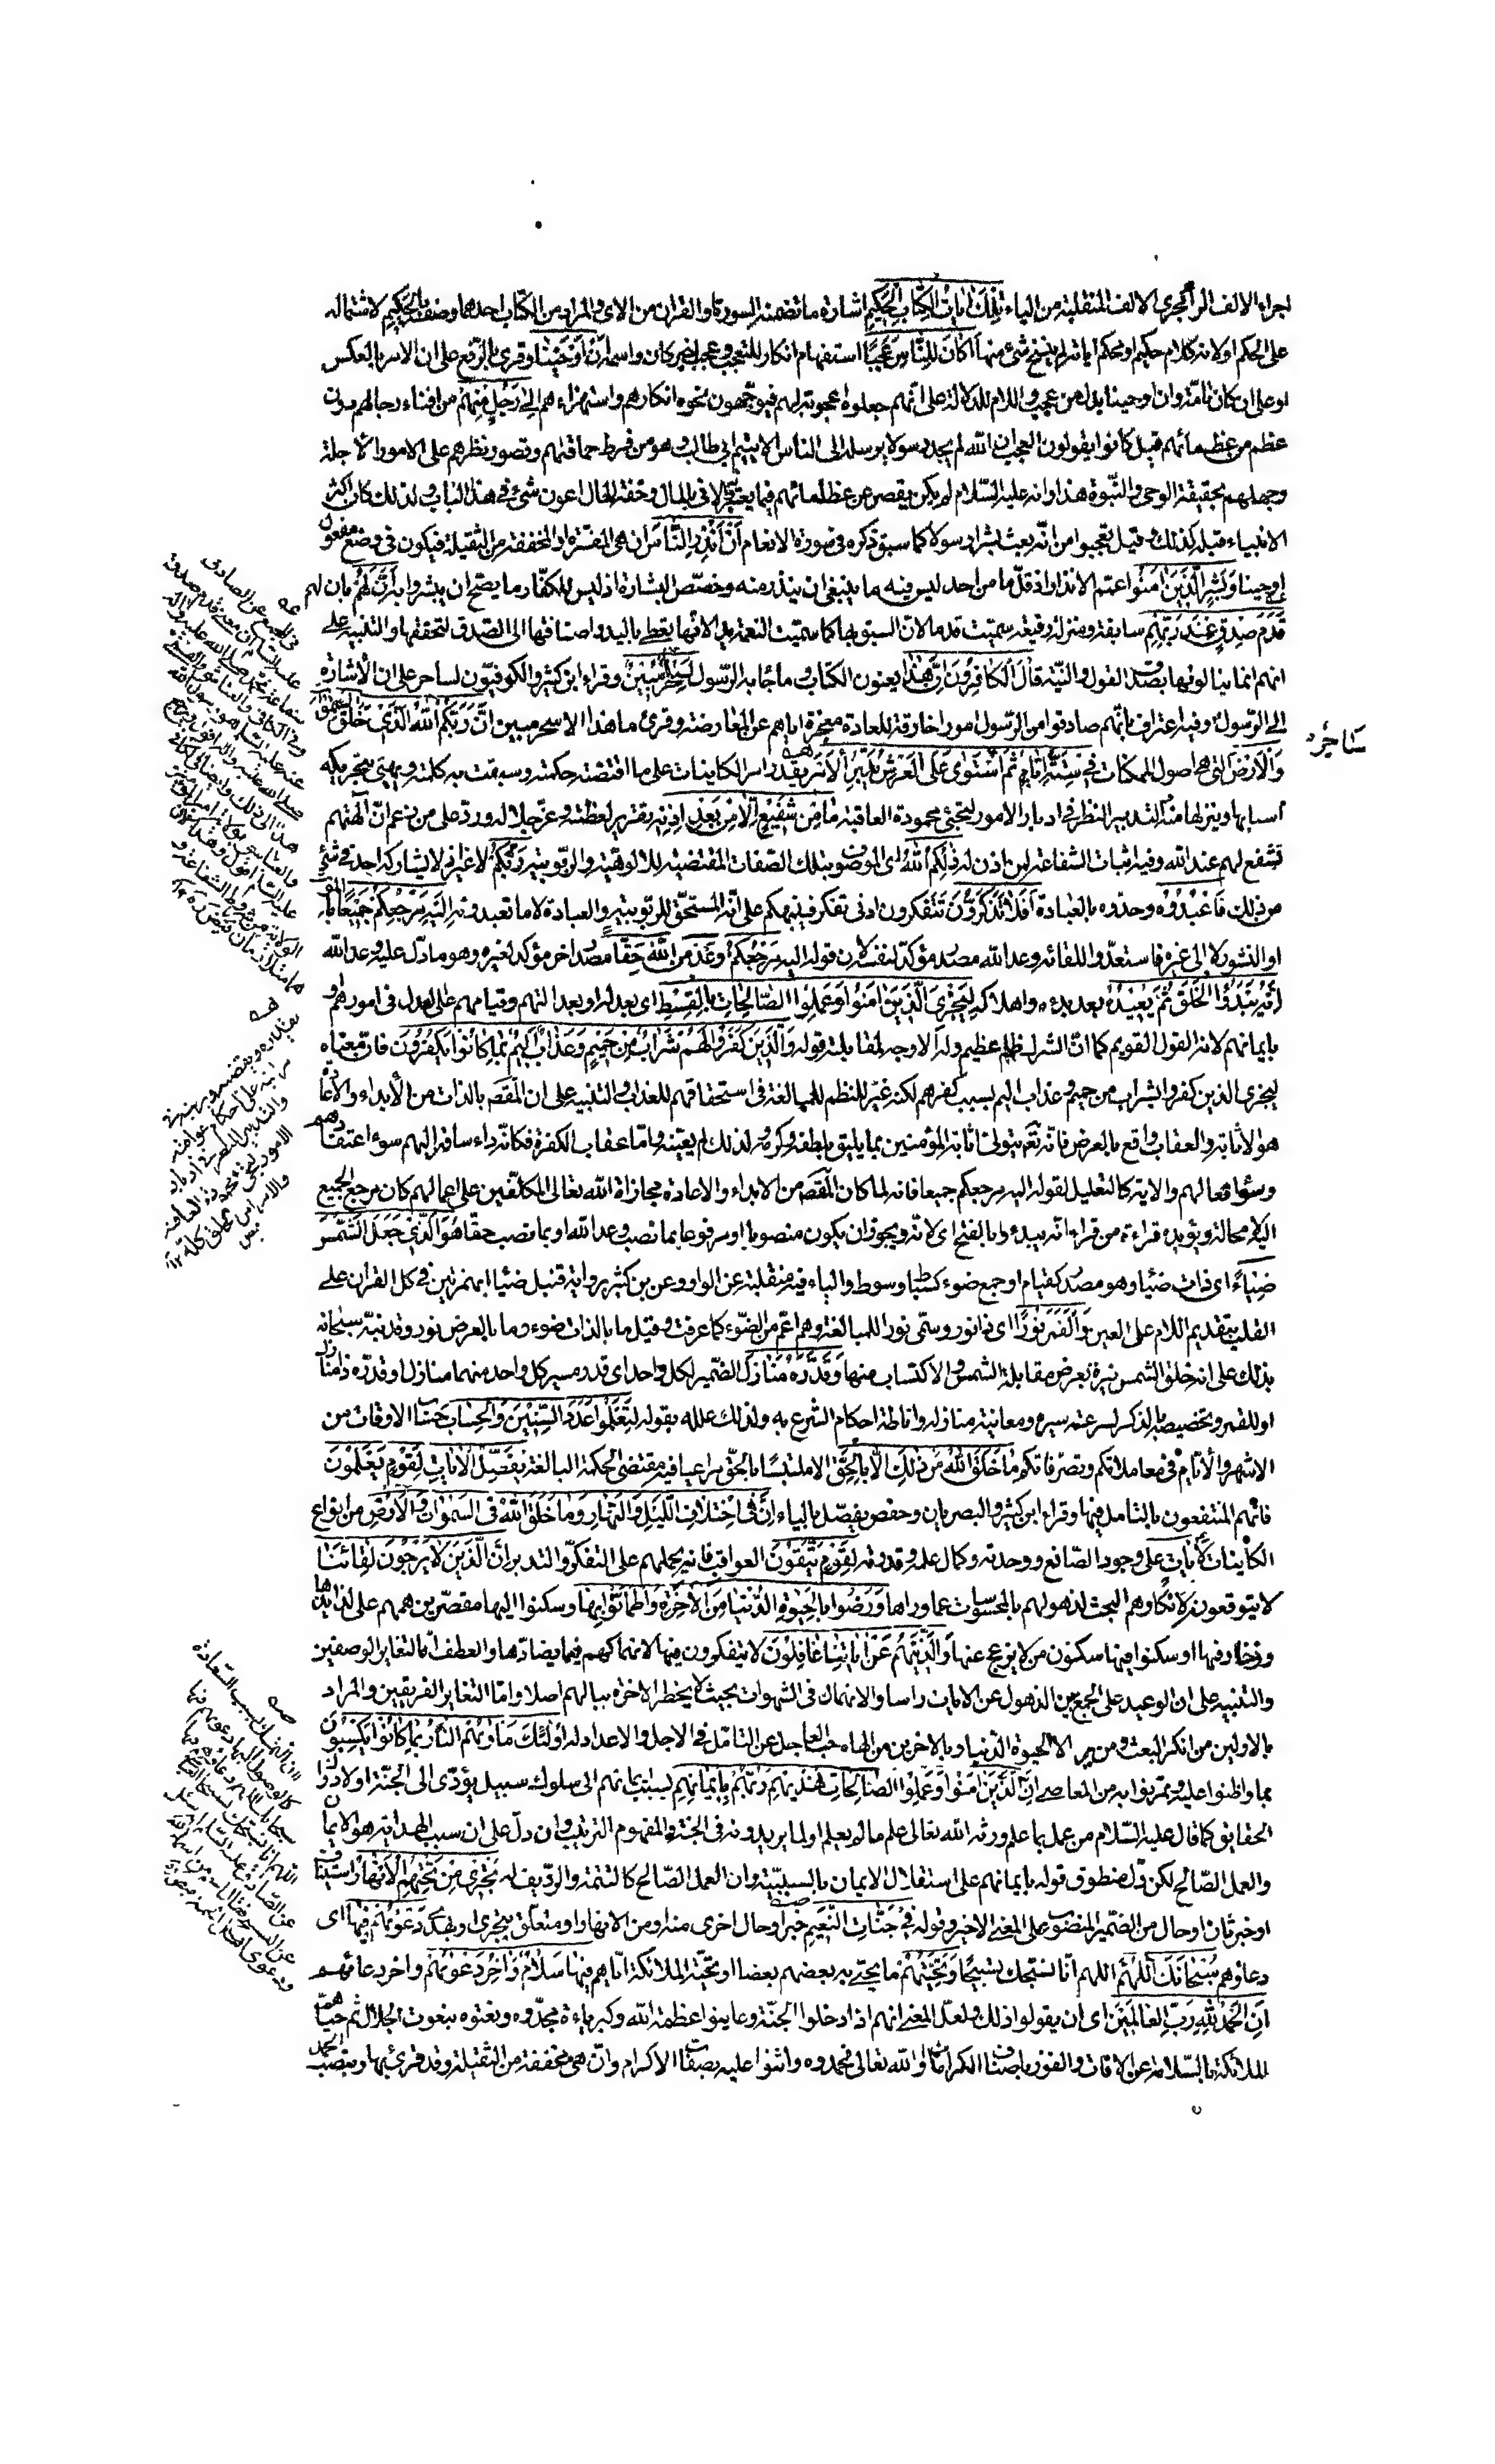 اجراء لالف الرا مجرى الالف المنقلبة من الياء تِلْكَ اٰيَاتُ الْكِتَابِ الْحَكِيمِ اشارة ما تضمنته السورة او القران من الاى والمراد من الكتاب احدهما وصفه بالحكيم لاشتماله
على الحكم او لانه كلام حكيم او محكم اياته لم ينسخ شئ منها اَكَانَ لِلنَّاسِ عَجَبًا استفهام انكار للتعجب وعجبا خبر كان واسمه اَنْ اَوْحَيْنَا وقرئ بالرفع على ان الامر بالعكس
او على ان كان تامّة وان اوحينا بدل من عجب واللام للدلالة على انّهم جعلوه اعجوبة لهم فيوجّهون نحوه انكارهم واستهزاءهم اِلٰى رَجُلٍ مِنْهُمْ من افناء رجالهم دون
عظيم من عظمائهم قيل كانوا يقولون العجب ان الله لم يجد رسولا يرسله الى الناس الا يتيم ابى طالب وهو من فرط حماقتهم وقصور نظرهم على الامور العاجلة
وجهلهم بحقيقة الوحى والنبّوة هذا وانه عليه السّلام لم يكن يقصر عن عظمائهم فيما يعتبرونه الا فى المال وخفة الحال اعون شئ فى هذا الباب ولذلك كان اكثر
الانبياء قبله كذلك وقيل تعجبوا من انّه بعث بشرا رسولا كما سبق ذكره فى سورة الانعام اَنْ اَنْذِرِ النَّاسَ ان هى المفسّرة او المخففة من الثقيلة فيكون فى موضع مفعول
اوحينا وَبَشِّرِ الَّذِينَ اٰمَنُوا عمّم الانذار اذ قلّ ما من احد ليس فيه ما ينبغى ان ينذر منه وخصّص البشارة اذ ليس للكفّار ما يصحّ ان يبشروا به اَنَّ لَهُمْ بان لهم
قَدَمَ صِدْقٍ عِنْدَ رَبِّهِمْ سابقة ومنزلة رفيعة سمّيت قدما لان السبق بها كما سمّيت النعمة يدا لانّها تعطى باليد واضافتها الى الصّدق لتحققها والتنبيه على
انهم انما ينالونها بصدق القول والنيّة قَالَ الْكَافِرُونَ اِنَّ هٰذَا يعنون الكتاب وما جاء به الرّسول لَسِحْرٌ مُبِينٌ وقراء ابن كثير والكوفيّون لساحر على ان الاشارة
الى الرّسول وفيه اعتراف بانّهم صادفوا من الرّسول امورا خارقة للعادة معجزة اياهم عن المعارضة وقرئ ما هذا الا سحر مبين اِنَّ رَبَّكُمُ اللّٰهُ الَّذِي خَلَقَ السَّمٰوَاتِ
وَالْاَرْضَ التى هى اصول الممكنات فِي سِتَّةِ اَيَّامٍ ثُمَّ اسْتَوٰى عَلَى الْعَرْشِ يُدَبِّرُ الْاَمْرَ يقدّر امر الكاينات على ما اقتضته حكمته وسبقت به كلمته ويهيئ بتحريكه
اسبابها وينزلها منه والتدبير النظر فى ادبار الامور لتجئ محمودة العاقبة مَا مِنْ شَفِيعٍ اِلَّا مِنْ بَعْدِ اِذْنِهِ تقرير لعظمته وعزّ جلاله وردّ على من زعم انّ الهتهم
تشفع لهم عند الله وفيه اثبات الشفاعة لمن اذن له ذٰلِكُمُ اللّٰهُ اى الموصوف بتلك الصّفات المقتضية للالوهيّة والرّبوبيّة رَبُّكُمْ لا غيره اذ لا يشاركه احد فى شئ
من ذلك فَاعْبُدُوهُ وحدّوه بالعبادة اَفَلَا تَذَكَّرُونَ تتفكرون ادنى تفكر فينبهكم على انّه المستحقّ للربوبيّة والعبادة لا ما تعبدونه اِلَيْهِ مَرْجِعُكُمْ جَمِيعًا بالموت
او النشور لا الى غيره فاستعدّوا للقائه وعد الله مصدر مؤكّد لنفسه لان قوله اليه مرجعكم وَعْدٌ من اللّٰهِ حَقًّا مصدر اخر مؤكد لغيره وهو ما دلّ عليه وعد الله
اِنَّهُ يَبْدَؤُا الْخَلْقَ ثُمَّ يُعِيدُهُ بعد بدءه واهلاكه لِيَجْزِيَ الَّذِينَ اٰمَنُوا وَعَمِلُوا الصَّالِحَاتِ بِالْقِسْطِ اى بعدله او بعدالتهم وقيامهم على العدل فى امورهم او
بايمانهم لانه القول القويم كما انّ الشرك ظلم عظيم وهو الاوجه لمقابلة قوله وَالَّذِينَ كَفَرُوا لَهُمْ شَرَابٌ مِنْ حَمِيمٍ وَعَذَابٌ اَلِيمٌ بِمَا كَانُوا يَكْفُرُونَ فان معناه
ليجزى الذين كفروا بشراب من حميم وعذاب اليم بسبب كفرهم لكنه غيّر النظم للمبالغة فى استحقاقهم للعذاب والتنبيه على ان المقصود بالذات من الابداء والاعادة
هو الاثابة والعقاب واقع بالعرض فانّه تعالى يتولى اثابة المؤمنين بما يليق بلطفه وكرمه ولذلك لم يعيّنه وامّا عقاب الكفرة فكانّه داء ساقه اليهم سوء اعتقادهم
وسوء افعالهم والاية كالتعليل لقوله اليه مرجعكم جميعا فانه لما كان المقصود من الابداء والاعادة مجازاة الله تعالى المكلّفين على اعمالهم كان مرجع الجميع
اليه لا محالة ويؤيده قراءة من قراء انه يبدء بالفتح اى لانه ويجوز ان يكون منصوبا او مرفوعا بما نصب وعد الله او بما نصب حقّا هُوَ الَّذِي جَعَلَ الشَّمْسَ
ضِيَاءً اى ذات ضياء وهو مصدر كقيام او جمع ضوء كسياط وسوط والياء فيه منقلبة عن الواو وعن بن كثير برواية قنبل ضئاء بهمزتين فى كل القران على
القلب بتقديم اللام على العين وَالْقَمَرَ نُورًا اى ذا نور وسمّى نورا للمبالغة وهو اعمّ من الضّوء كما عرفت وقيل ما بالذات ضوء وما بالعرض نور وقد نبّه سبحانه
بذلك على انه خلق الشمس نيرة بعرض مقابلة الشمس والاكتساب منها وَقَدَّرَهُ مَنَازِلَ الضّمير لكل واحد اى قدر مسير كل واحد منهما منازل او قدّره ذا منازل
او للقمر وتخصيصه بالذكر لسرعة سيره ومعاينة منازله واناطة احكام الشرع به ولذلك علله بقوله لِتَعْلَمُوا عَدَدَ السِّنِينَ وَالْحِسَابَ حساب الاوقات من
الاشهر والايّام فى معاملاتكم وتصرّفاتكم مَا خَلَقَ اللّٰهُ ذٰلِكَ اِلَّا بِالْحَقِّ الا ملتبسا بالحقّ مراعيا فيه مقتضى الحكمة البالغة نُفَصِّلُ الْاٰيَاتِ لِقَوْمٍ يَعْلَمُونَ
فانّهم المنتفعون بالتامل فيها وقراء ابن كثير والبصريان وحفص يفصّل بالياء اِنَّ فِي اخْتِلَافِ اللَّيْلِ وَالنَّهَارِ وَمَا خَلَقَ اللّٰهُ فِي السَّمٰوَاتِ وَالْاَرْضِ من انواع
الكاينات لَاٰيَاتٍ على وجود الصّانع ووحدته وكمال علمه وقدرته لِقَوْمٍ يَتَّقُونَ العواقب فانه يحملهم على التفكّر والتدبر اِنَّ الَّذِينَ لَا يَرْجُونَ لِقَائَنَا
لا يتوقعونه لانكارهم البعث لذهولهم بالمحسوسات عما وراها وَرَضُوا بِالْحَيٰوةِ الدُّنْيَا مِنَ الْاٰخِرَةِ وَاطْمَاَنُّوا بِهَا وسكنوا اليها مقصّرين هممهم على لذايذها
وزخارفها او سكنوا فيها سكون من لا يزعج عنها وَالَّذِينَ هُمْ عَنْ اٰيَاتِنَا غَافِلُونَ لا يتفكرون فيها لانهماكهم فيما يضادّها والعطف امّا لتغاير الوصفين
والتنبيه على ان الوعيد على الجمع بين الذهول عن الايات راسا والانهماك فى الشهوات بحيث لا يخطر الاخرة ببالهم اصلا وامّا لتغاير الفريقين والمراد
بالاولين من انكر البعث ومن ير الا الحيوة الدّنيا وبالاخرين من الهاه حب العاجل عن التامّل فى الاجل والاعداد له اُولٰئِكَ مَاْوٰيهُمُ النَّارُ بِمَا كَانُوا يَكْسِبُونَ
بما واظبوا عليه وتمرّنوا به من المعاصى اِنَّ الَّذِينَ اٰمَنُوا وَعَمِلُوا الصَّالِحَاتِ يَهْدِيهِمْ رَبُّهُمْ بِاِيمَانِهِمْ بسبب ايمانهم الى سلوك سبيل يؤدّى الى الجنّة او لادراك
الحقايق كما قال عليه السّلام من عمل بما علم ورثه الله تعالى علم ما لم يعلم او لما يريدونه فى الجنة والمفهوم الترتيب وان دلّ على ان سبب الهداية هو الايمان
والعمل الصّالح لكن دلّ منطوق قوله بايمانهم على استقلال الايمان بالسببيّة وان العمل الصّالح كالتتمة والرّديف له تَجْرِي مِنْ تَحْتِهِمُ الْاَنْهَارُ استيناف
او خبر ثان او حال من الضّمير المنصوب على المعنى الاخير وقوله فِي جَنَّاتِ النَّعِيمِ خبر او حال اخرى منه او من الانهار او متعلّق بتجرى او بيهدى دَعْوٰيهُمْ فِيهَا اى
دعاؤهم سُبْحَانَكَ اللّٰهُمَّ اللهم انا نسبّحك تسبيحًا وَتَحِيَّتُهُمْ ما يحيّى به بعضهم بعضا او تحيّة الملائكة ايّاهم فِيهَا سَلَامٌ وَاٰخِرُ دَعْوٰيهُمْ واخر دعائهم
اَنِ الْحَمْدُ لِلّٰهِ رَبِّ الْعَالَمِينَ اى ان يقولوا ذلك ولعلّ المعنى انهم اذا دخلوا الجنّة وعاينوا عظمة الله وكبرياءه مجّدوه ونعتوه بنعوت الجلال ثم حيّاهم
الملائكة بالسّلامة عن الافات والفوز باصناف الكرامات او الله تعالى فحمدوه واثنوا عليه بصفات الاكرام وانّ هى مخففة من الثقيلة وقد قرئ بها وبنصب الحمد